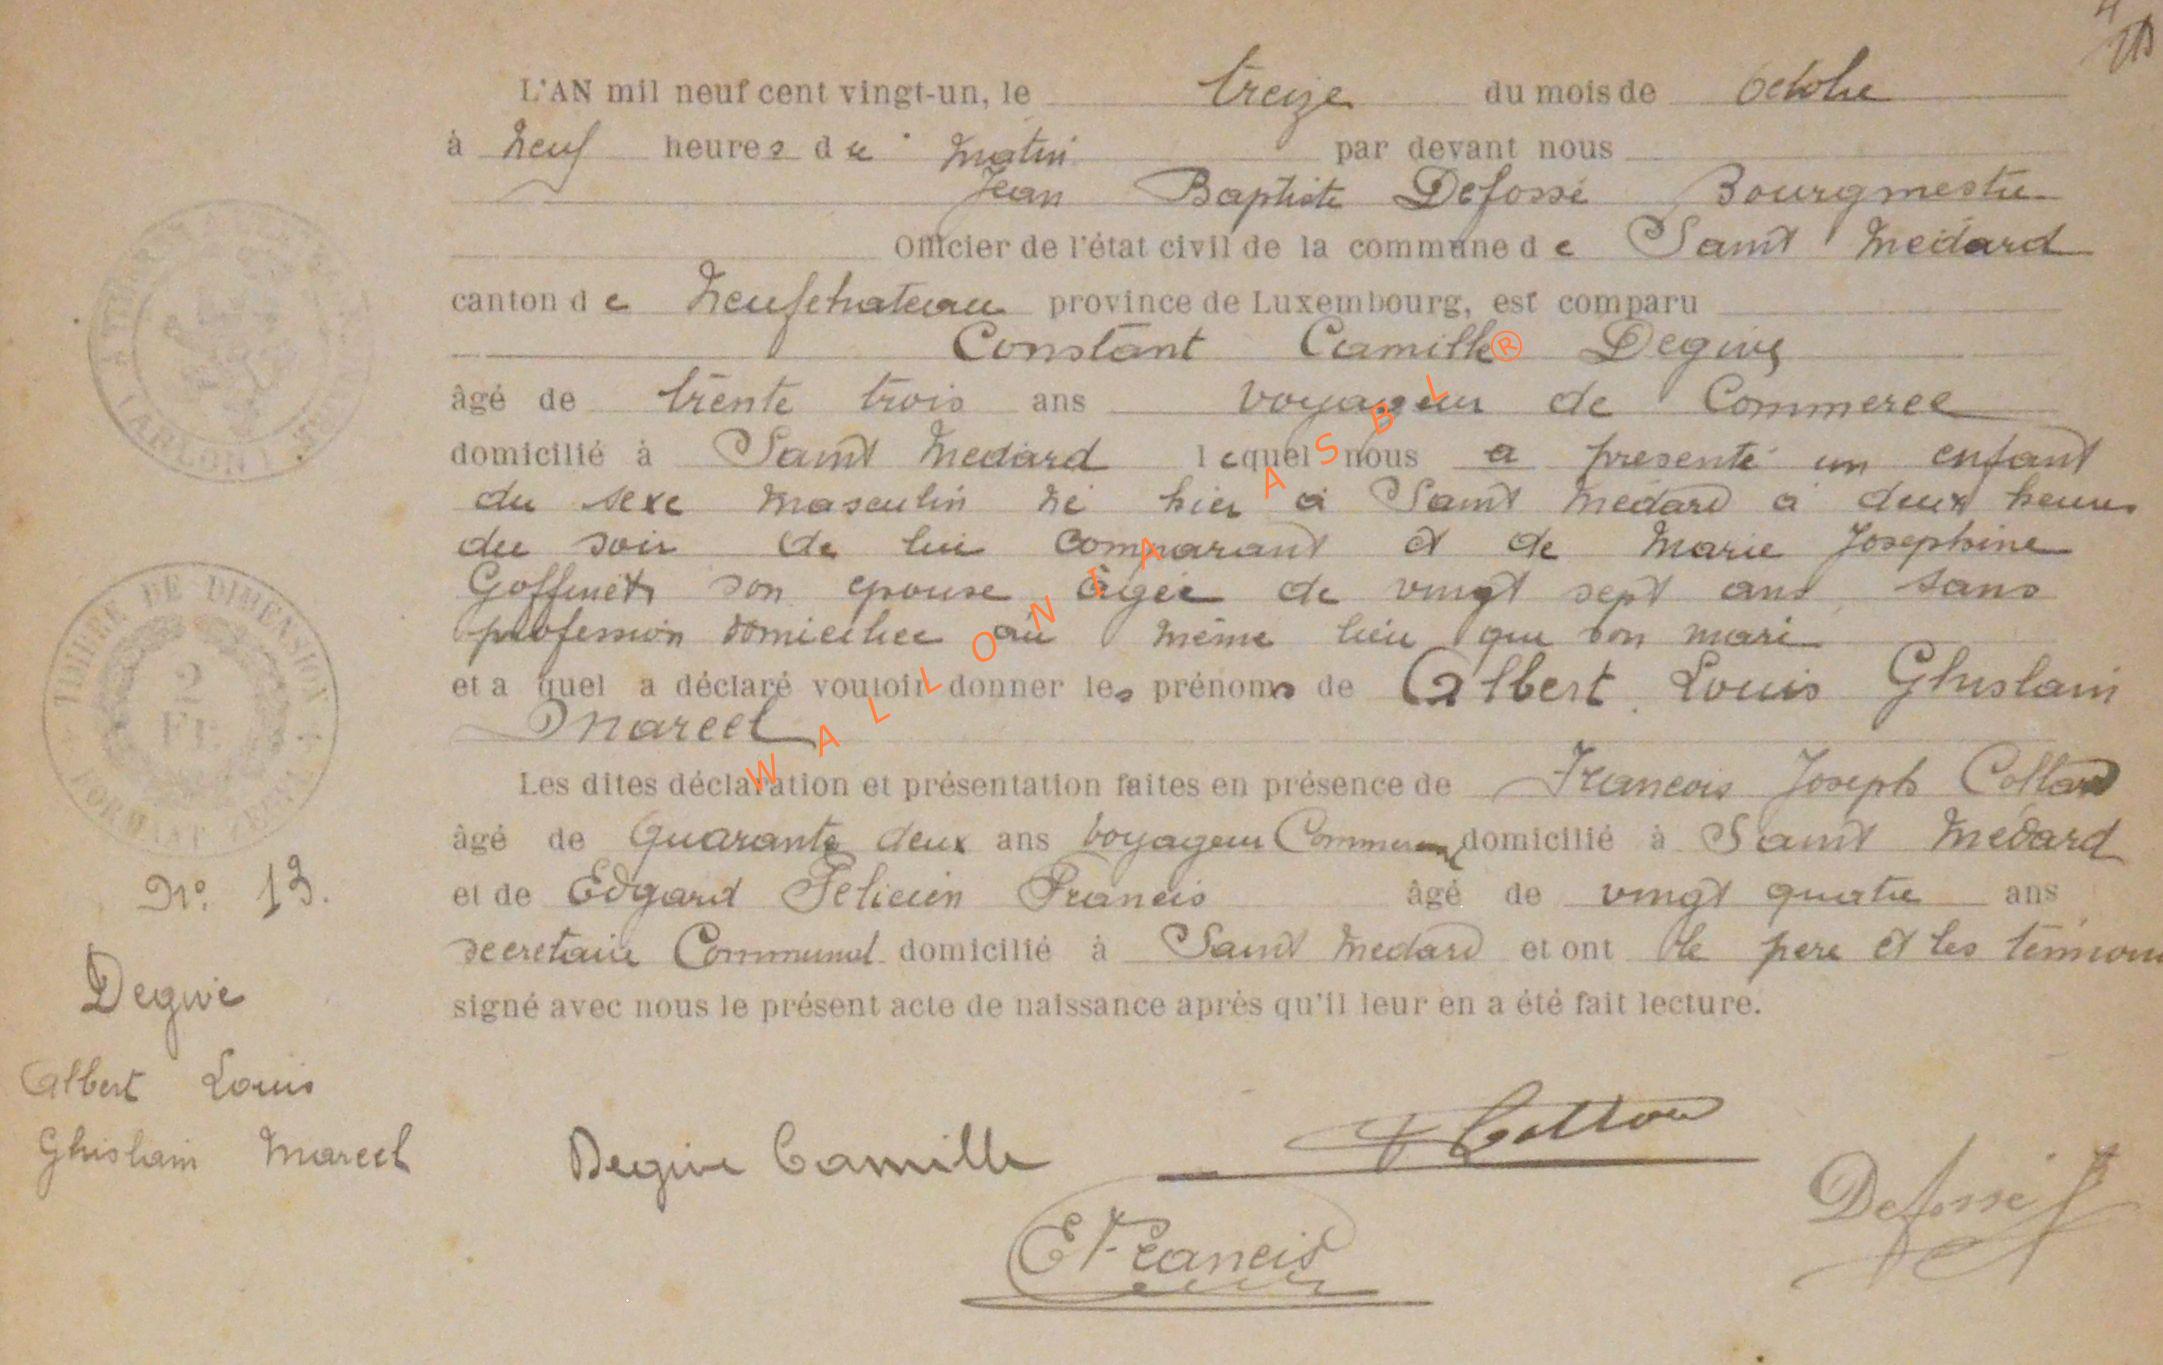 L'AN mil neuf cent vingt-un, le treize du mois de Octobre
à neuf heures du matin par devant nous
Jean Baptiste Defossé Bourgmestre
Officier de l'état civil de la commune de Saint Médard
canton de Neufchateau province de Luxembourg, est comparu
Constant Camille Degive
âgé de trente trois ans voyageur de Commerce
domicilié à Saint Medard lequel nous a presenté un enfant
du sexe masculin né hier à Saint Medard à deux heures
du soir de lui comparant et de Marie Josephine
Goffinet son epouse âgée de vingt sept ans sans
profession domiciliée au même lieu que son mari
et a quel a déclaré vouloir donner les prénoms de Albert Louis Ghislain
Marcel
Les dites déclaration et présentation faites en présence de Francois Joseph Collard
âgé de quarante deux ans voyageur Commerce domicilié à Saint Medard
et de Edgard Felicien Francis âgé de vingt quatre ans
secretaire Communal domicilié à Saint Medard et ont le père et les témoins
signé avec nous le présent acte de naissance après qu'il leur en a été fait lecture.
TIMBRE DE DIMENSION
2
FR.
(ARLON)
N° 13.
Degive
Albert Louis
Ghislain Marcel
Degive Camille
E Francis
Defossé
WALLONIA ASBL®